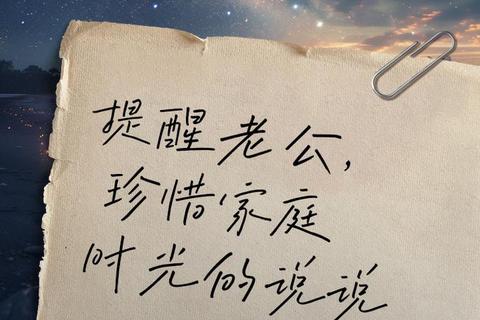 提醒老公，
珍惜家庭
时光的说说